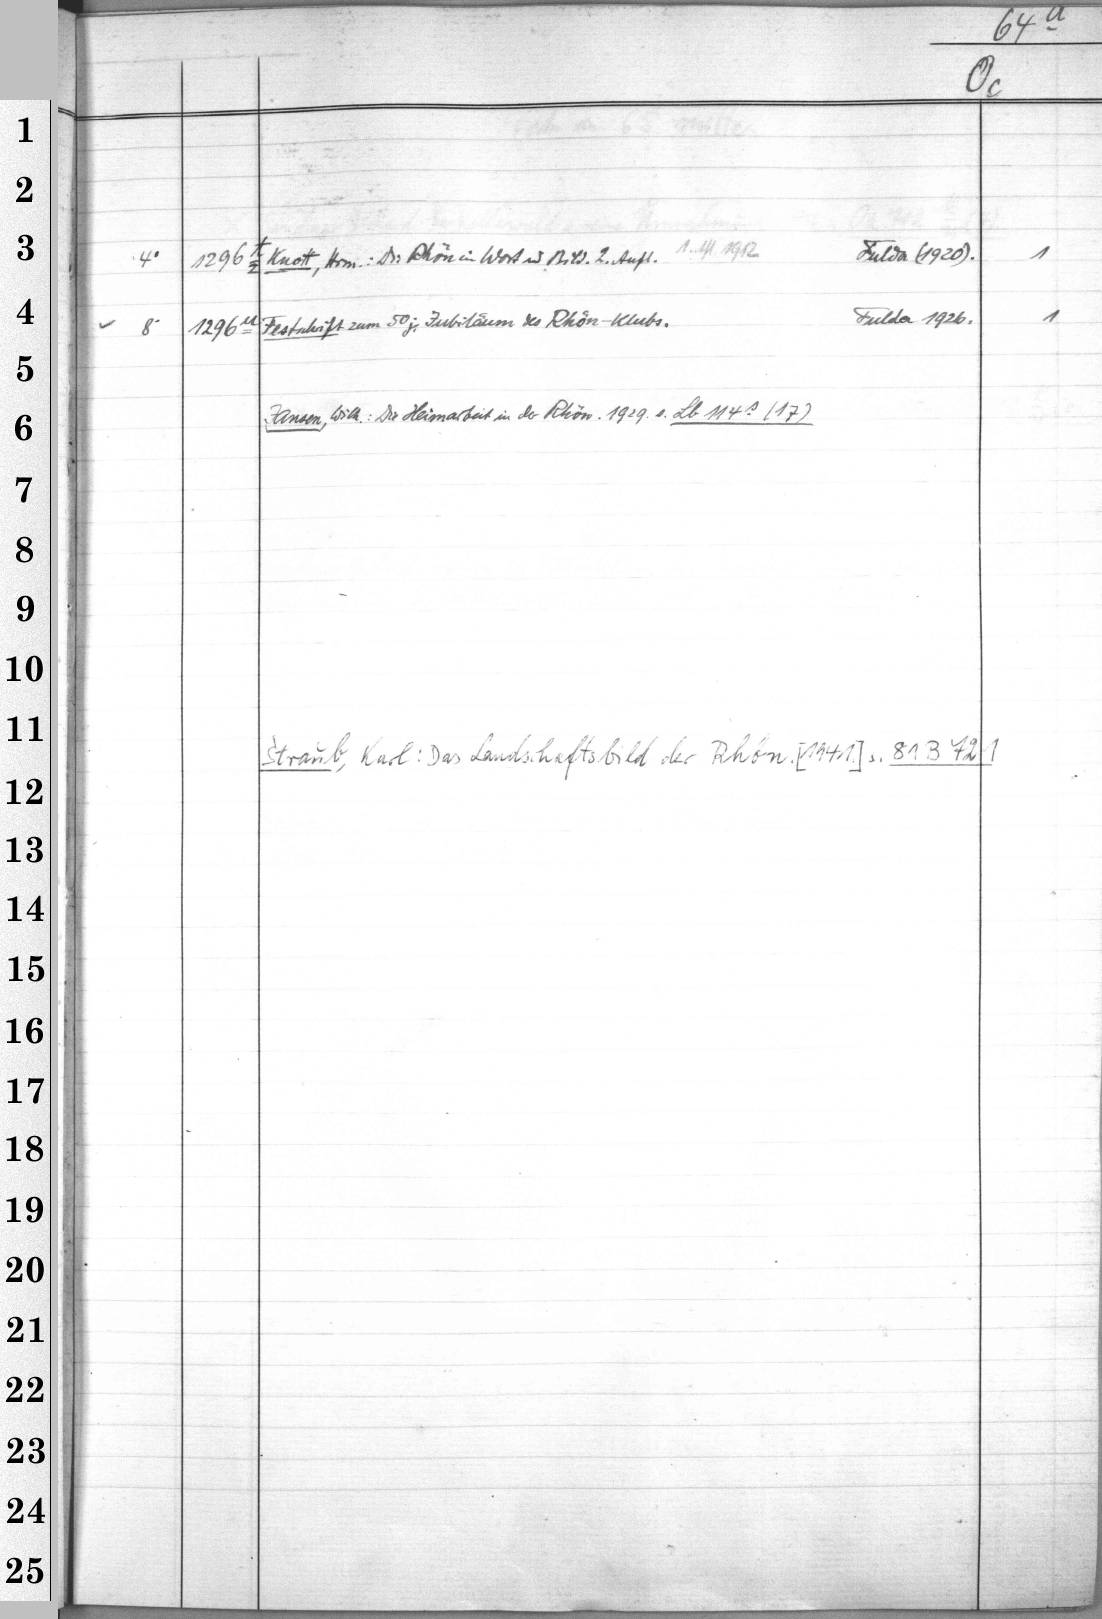 64 a
Oc
1
2
3 4° 1296 t Knott, Hrm.: Die Rhön in Wort u. Bild. 2. Aufl. 1. Afl. 1912 Fulda (1920). 1
4 8° 1296 u Festschrift zum 50 j. Jubiläum des Rhön-Klubs. Fulda 1926. 1
5
6 Jansen, Wilh.: Die Heimarbeit in der Rhön. 1929. s. Lb 114 s (17)
7
8
9
10
11 Straub, Karl: Das Landschaftsbild der Rhön. [1941.] s. 81 B 721
12
13
14
15
16
17
18
19
20
21
22
23
24
25